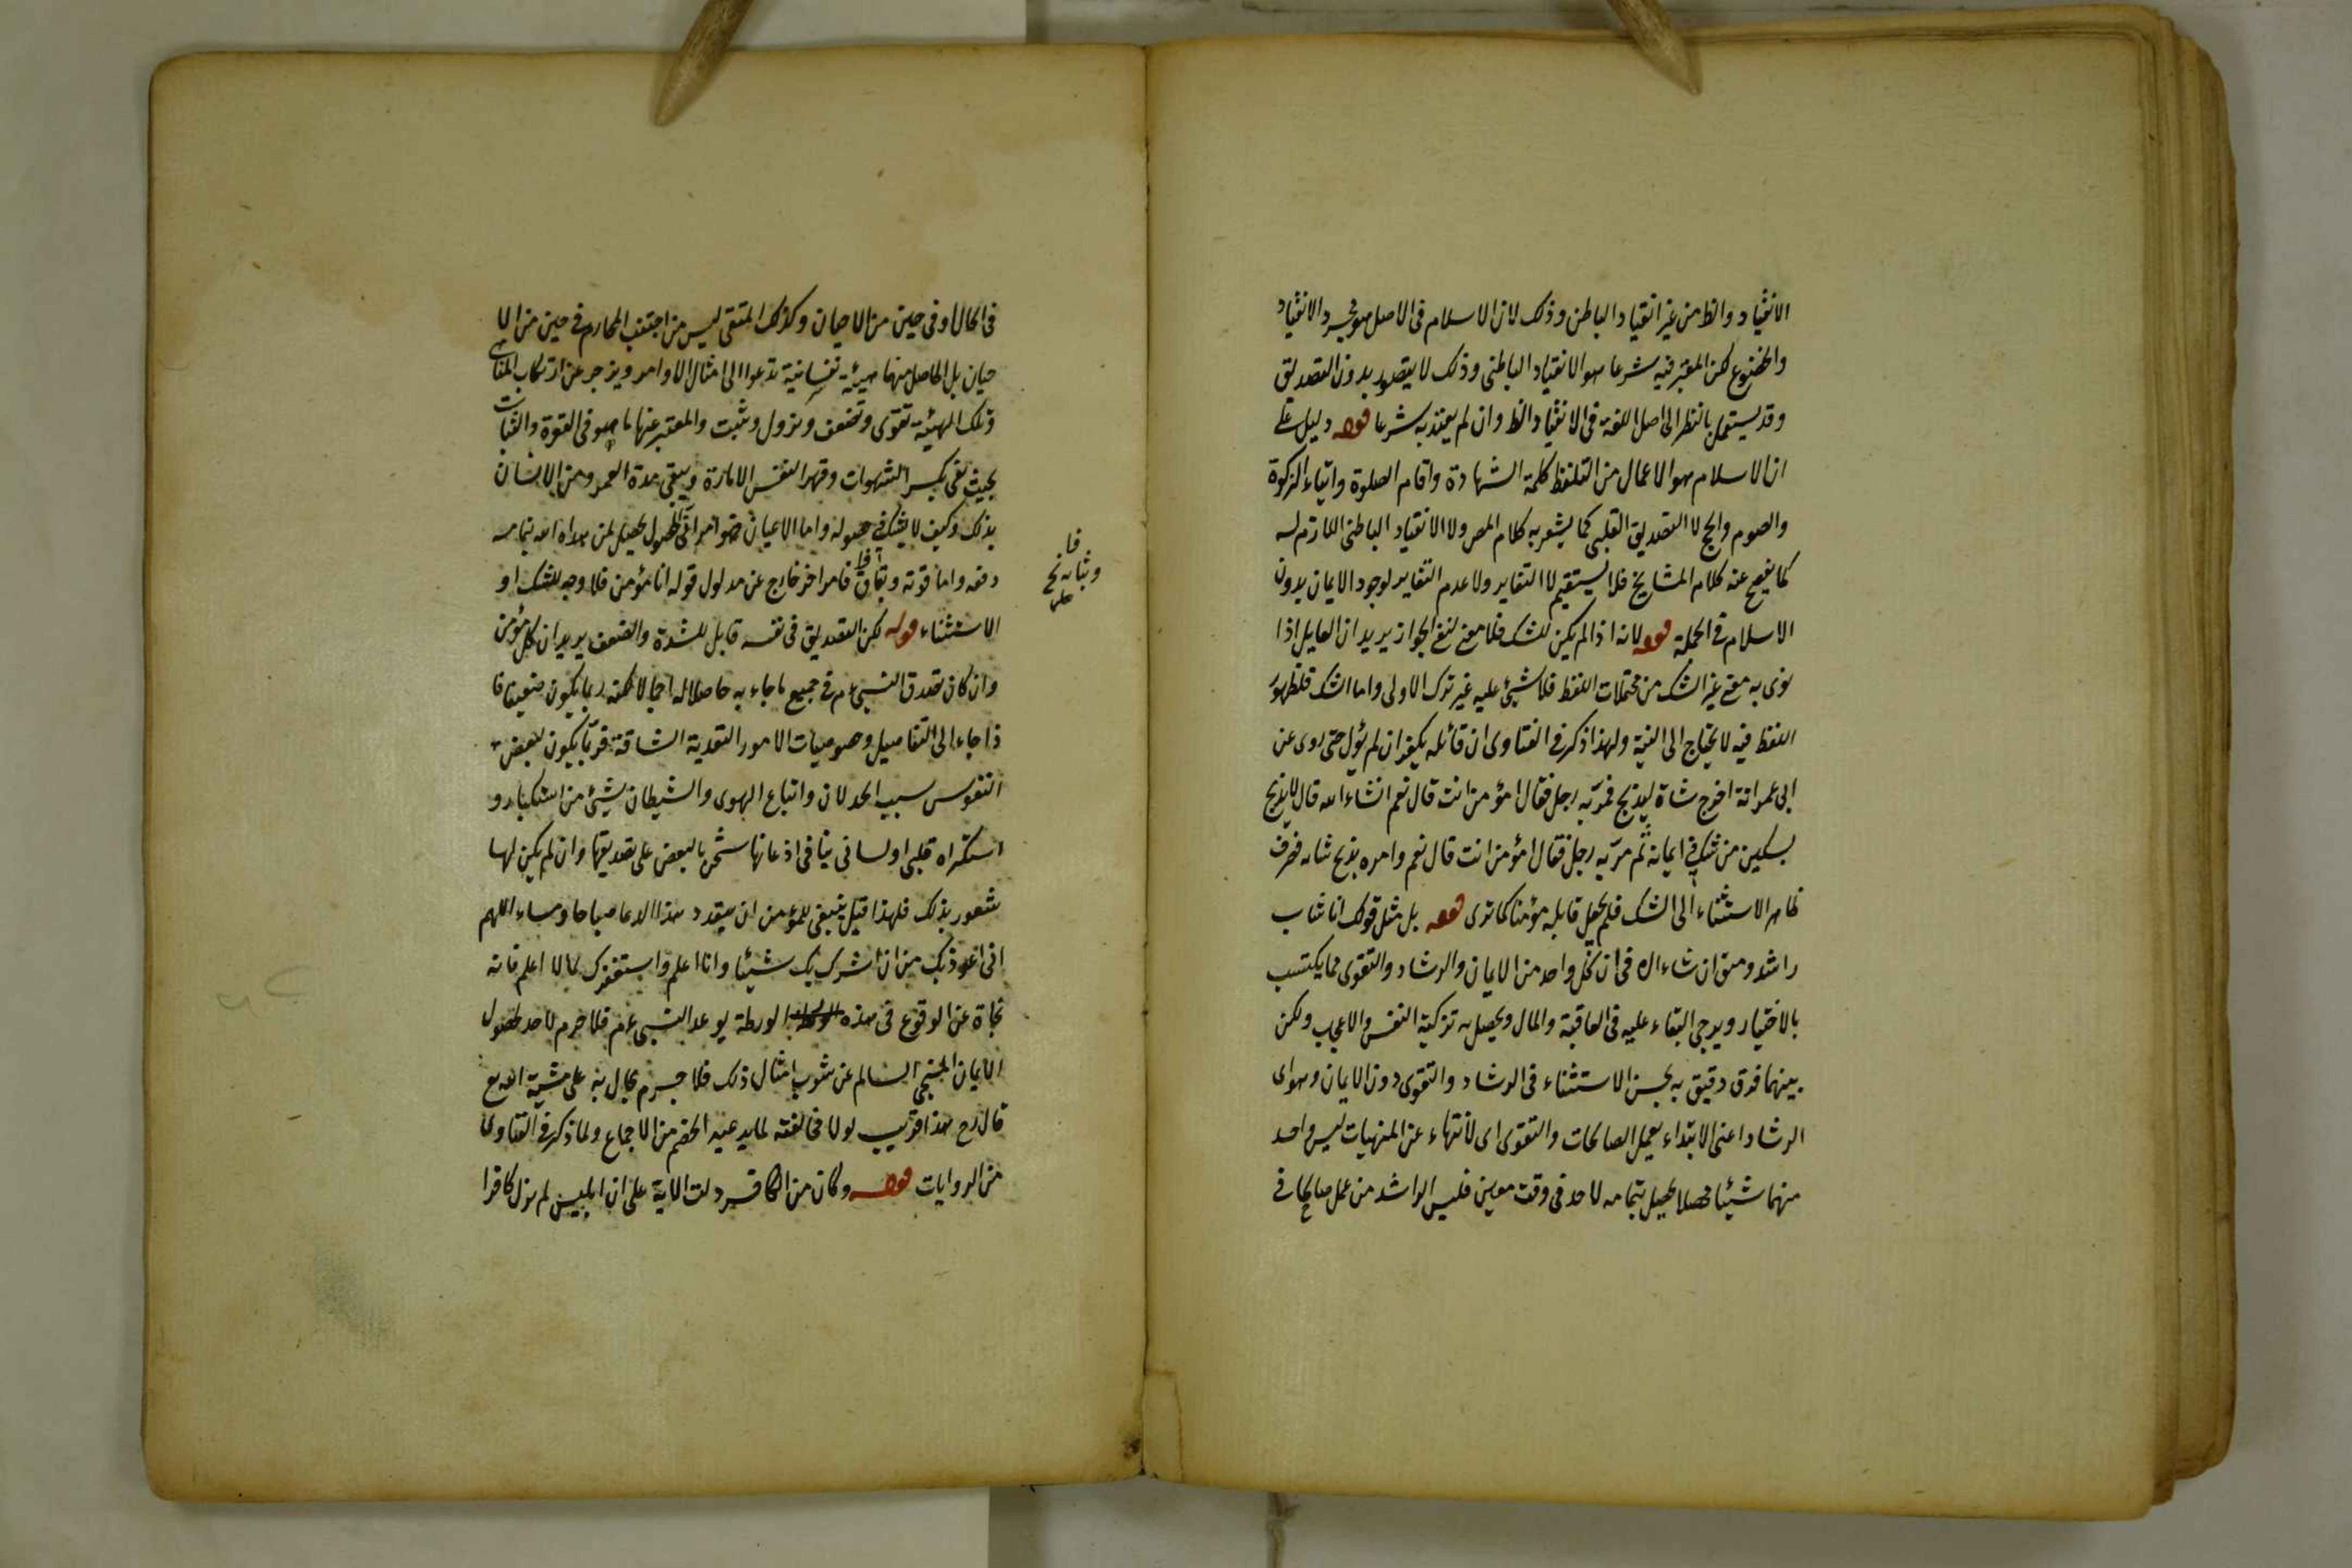 الانقياد والظ من غير انقياد الباطن وذلك لان الاسلام فى الاصل هو مجرد الانقياد
والخضوع لكن المعتبر فيه شرعا هو الانقياد الباطنى وذلك لا يتصور بدون التصديق
وقد يستعمل بالنظر الى اصل اللغة فى الانقياد الظ وان لم يعتد به شرعا قوله دليل على
ان الاسلام هو الاعمال من التلفظ كلمة الشهادة واقام الصلوة وايتاء الزكوة
والصوم والحج لا التصديق القلبى كما يشعر به كلام المص ولا الانقياد الباطنى اللازم له
كما يفصح عنه كلام المشايخ فلا يستقيم لا التغاير ولا عدم التغاير لوجود الايمان بدون
الاسلام فى الجملة قوله لانه اذا لم يكن للشك فلا معنى لنفى الجواز يريد ان القايل اذا
نوى به معنى غير الشك من محتملات اللفظ فلا شيئ عليه غير ترك الاولى واما الشك فلظهور
اللفظ فيه لا يحتاج الى النية ولهذا ذكر فى الفتاوى ان قائله يكفر ان لم يؤل حتى روى عن
ابى عمر انه اخرج شاة ليذبح فمر به رجل فقال امؤمن انت قال نعم انشاء الله قال لا يذبح
بسكين من شك فى ايمانه ثم مر به رجل فقال امؤمن انت قال نعم وامره بذبح شاته فصرف
ظاهر الاستثناء الى الشك فلم يجعل قايله مؤمنا كما ترى قوله بل مثل قولك انا شاب
راشد ومتق ان شاء الله فى ان كل واحد من الايمان والرشاد والتقوى مما يكتسب
بالاختيار ويرجى البقاء عليه فى العاقبة والمال ويحصل به تزكية النفس والاعجاب ولكن
بينهما فرق دقيق به يحسن الاستثناء فى الرشاد والتقوى دون الايمان وهو ان
الرشاد اعنى الابتداء بعمل الصالحات والتقوى اى الانتهاء عن المنهيات ليس واحد
منهما شيئا محصلا يحصل بتمامه لاحد فى وقت معين فليس الراشد من عمل صالحا فى
فى الحال او فى حين من الاحيان وكذلك المتقى ليس من اجتنب المحارم فى حين من الا
حيان بل الحاصل منهما هيئة نفسانية تدعوا الى امثال الاوامر ويزجر عن ارتكاب المناهى
وتلك الهيئة تقوى وتضعف وتزول وتثبت والمعتبر عنها ما هو فى القوة والثبات
بحيث تفى بكسر الشهوات وقهر النفس الامارة ويبقى مدة العمر ومن الانسان
بذلك وكيف لا يشك فى حصوله واما الايمان فهو امر آنى الحصول يحصل لمن هداه الله بتمامه
دفعه واما قوته وبقاؤه فامر اخر خارج عن مدلول قوله انا مؤمن فلا وجه للشك او
الاستثناء قوله لكن التصديق فى نفسه قابل للشدة والضعف يريد ان كل مؤمن
وان كان تصدق النبى ءم فى جميع ما جاء به حاصلا له اجمالا لكنه ربما يكون ضعيفا فا
ذا جاء الى التفاصيل وخصوصيات الامور التعدية الشاقة فربما يكون لبعض
النفوس سبب الخذلان واتباع الهوى والشيطان شيئ من استكبار و
استكراه قلبى او لسانى ينافى اذعانها
شعور بذلك فلهذا قيل ينبغى للمؤمن ان يتعدد هذا الدعا صباحا ومساء اللهم
انى اعوذ بك من ان اشرك بك شيئا وانا اعلم واستغفرك لما لا اعلم فانه
نجاة عن الوقوع فى هذه الورطة بوعد النبى ءم فلا جزم لاحد بحصول
الايمان المنجى السالم عن شوب امثال ذلك فلا جرم يحال به على مشية الله تع
قال رح هذا قريب لولا مخالفته لما يدعيه الخصم من الاجماع ولما ذكر فى الفتاوى
من الروايات قوله وكان من الكافر دلت الاية على ان ابليس لم يزل كافرا